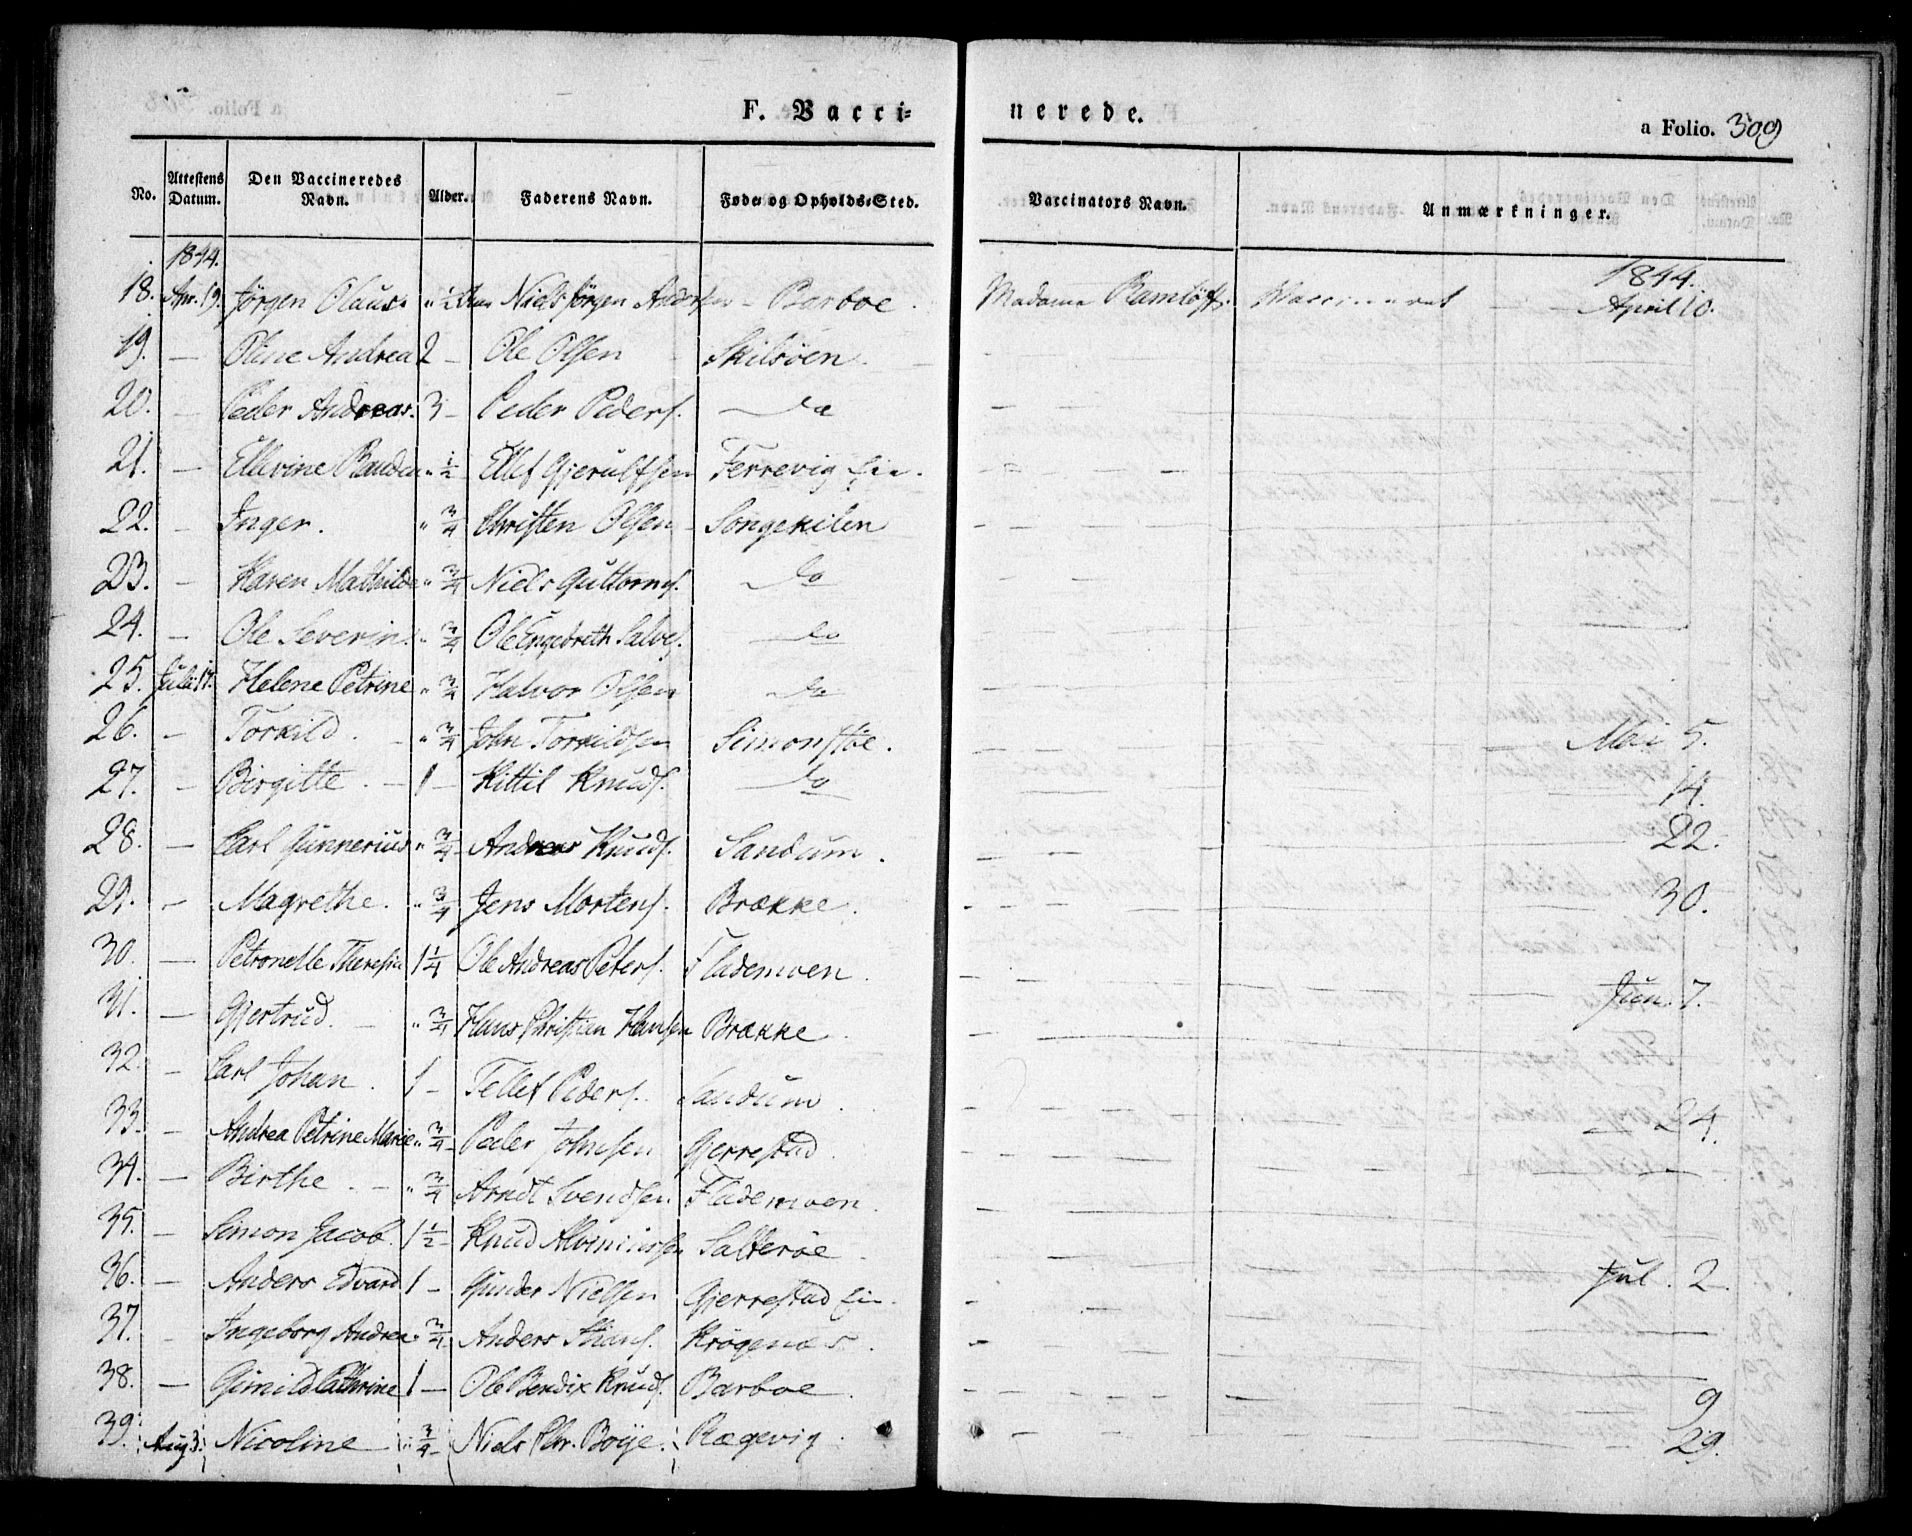 F. Vacci- nerede. a Folio. 309
No. Attestens Datum. Den Vaccineredes Navn. Alder. Faderens Navn. Føde- og Opholds-Sted. Vaccinators Navn. Anmærkninger.
1844. 1844.
18. Apr. 19. Jørgen Olaus " ½ Niels Jørgen Barboe. Madame April 10.
19. — Oline Andrea 2 — Ole Olsen Skilsöen
20. — Peder Andreas. 3 — Peder Peders. do
21. — Ellevine " ½ Ellef Gjerulfsen Ferrevig Eie.
22. — Inger. " ¾ Christen Olsen Songekilen
23. — Karen Mathilde " ¾ Niels Guttorms. do
24. — Ole Severin " ¾ Ole Engebreth Salves. do
25. Juli 17. Helene Petrine " ¾ Halvor Olsen do
26. — Torkild. — " ¾ John Torkildsen Simonstöe. Mai 5.
27. — Birgitte. — 1 — Kittil Knuds. do 14.
28. — Carl Gunnerius " ¾ Andreas Knuds. Sandum. 22.
29. — Magrethe. " ¾ Jens Mortens. Brække. 30.
30. — Petronelle Theresia 1¼ Ole Andreas Peters. Flademoen.
31. — Gjertrud. — " ¾ Hans Christian Hansen Brække Jun. 7.
32. — Carl Johan. 1 — Tellef Peders. Sandum.
33. — Andrea Petrine Marie " ¾ Peder Johnsen Gjerrestad. 24.
34. — Birthe. — " ¾ Arndt Svendsen Flademoen.
35. — Simon Jacob. 1½ Knud Salterøe
36. — Anders Edvard 1 — Gunder Nielsen Gjerrestad Eie. Jul. 2.
37. — Ingeborg Andrea " ¾ Anders Krögenæs.
38. — Gunild Cathrine 1 — Ole Bendix Knuds. Barboe. 9
39. Aug 3. Nicoline " ¾ Niels Chr. Boye. Rægevig 29.